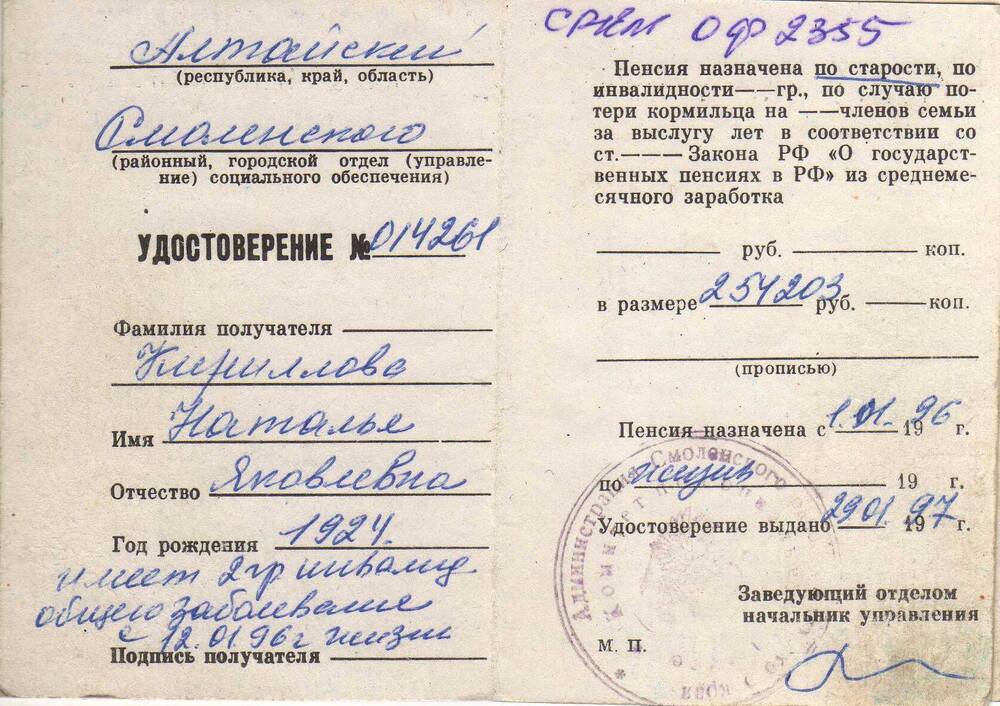 Алтайский
(республика, край, область)
Смоленского
(районный, городской отдел (управле-
ние) социального обеспечения)
УДОСТОВЕРЕНИЕ № 014261
Фамилия получателя
Кириллова
Имя Наталье
Отчество Яковлевна
Год рождения 1924.
имеет 2 гр инвалид
общего заболевание
с 12.01.96 г жизни
Подпись получателя
ОФ 2355
Пенсия назначена по старости, по
инвалидности——гр., по случаю по-
тери кормильца на ——членов семьи
за выслугу лет в соответствии со
ст.——— Закона РФ «О государст-
венных пенсиях в РФ» из среднеме-
сячного заработка
руб. коп.
в размере 254203 руб. коп.
(прописью)
Пенсия назначена с 1.01. 1996 г.
по жизни 19 г.
Удостоверение выдано 29.01. 1997 г.
Заведующий отделом
начальник управления
М. П.
Администрация Смоленского
Комитет
края